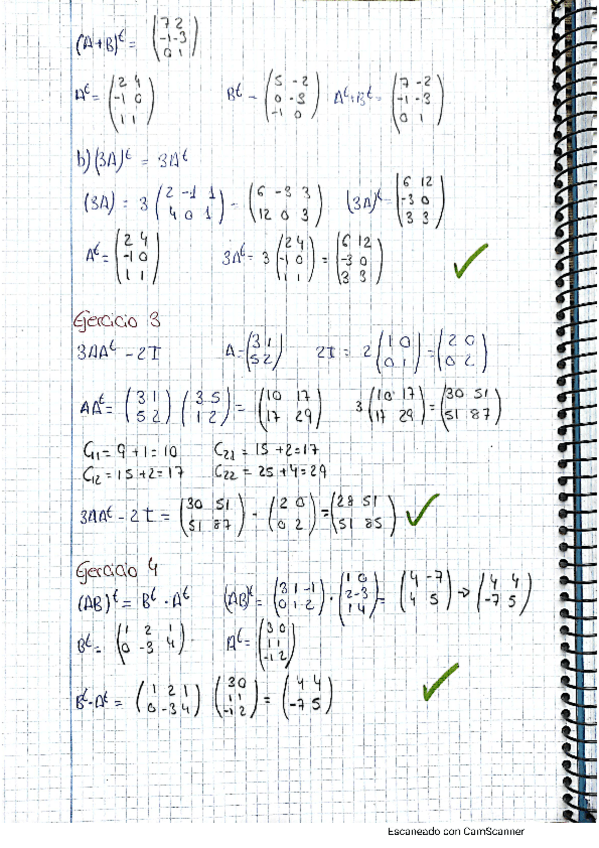 (A+B)^t = (7 2 / -1 -3 / 0 1)
A^t = (2 4 / -1 0 / 1 1) B^t - (5 -2 / 0 -3 / -1 0) A^t+B^t = (7 -2 / -1 -3 / 0 1)
b) (3A)^t = 3A^t
(3A) = 3 (2 -1 1 / 4 0 1) - (6 -3 3 / 12 0 3) (3A)^t = (6 12 / -3 0 / 3 3)
A^t = (2 4 / -1 0 / 1 1) 3A^t = 3 (2 4 / -1 0 / 1 1) = (6 12 / -3 0 / 3 3)
Ejercicio 3
3AA^t - 2I A = (3 1 / 5 2) 2I = 2 (1 0 / 0 1) = (2 0 / 0 2)
AA^t = (3 1 / 5 2) (3 5 / 1 2) = (10 17 / 17 29) 3 (10 17 / 17 29) = (30 51 / 51 87)
C11 = 9+1=10 C21 = 15+2=17
C12 = 15+2=17 C22 = 25+4=29
3AA^t - 2I = (30 51 / 51 87) - (2 0 / 0 2) = (28 51 / 51 85)
Ejercicio 4
(AB)^t = B^t · A^t (AB)^t = (3 1 -1 / 0 1 2) · (1 0 / 2 -3 / 1 4) = (4 -7 / 4 5) → (4 4 / -7 5)
B^t = (1 2 1 / 0 -3 4) A^t = (3 0 / 1 1 / -1 2)
B^t · A^t = (1 2 1 / 0 -3 4) (3 0 / 1 1 / -1 2) = (4 4 / -7 5)
Escaneado con CamScanner